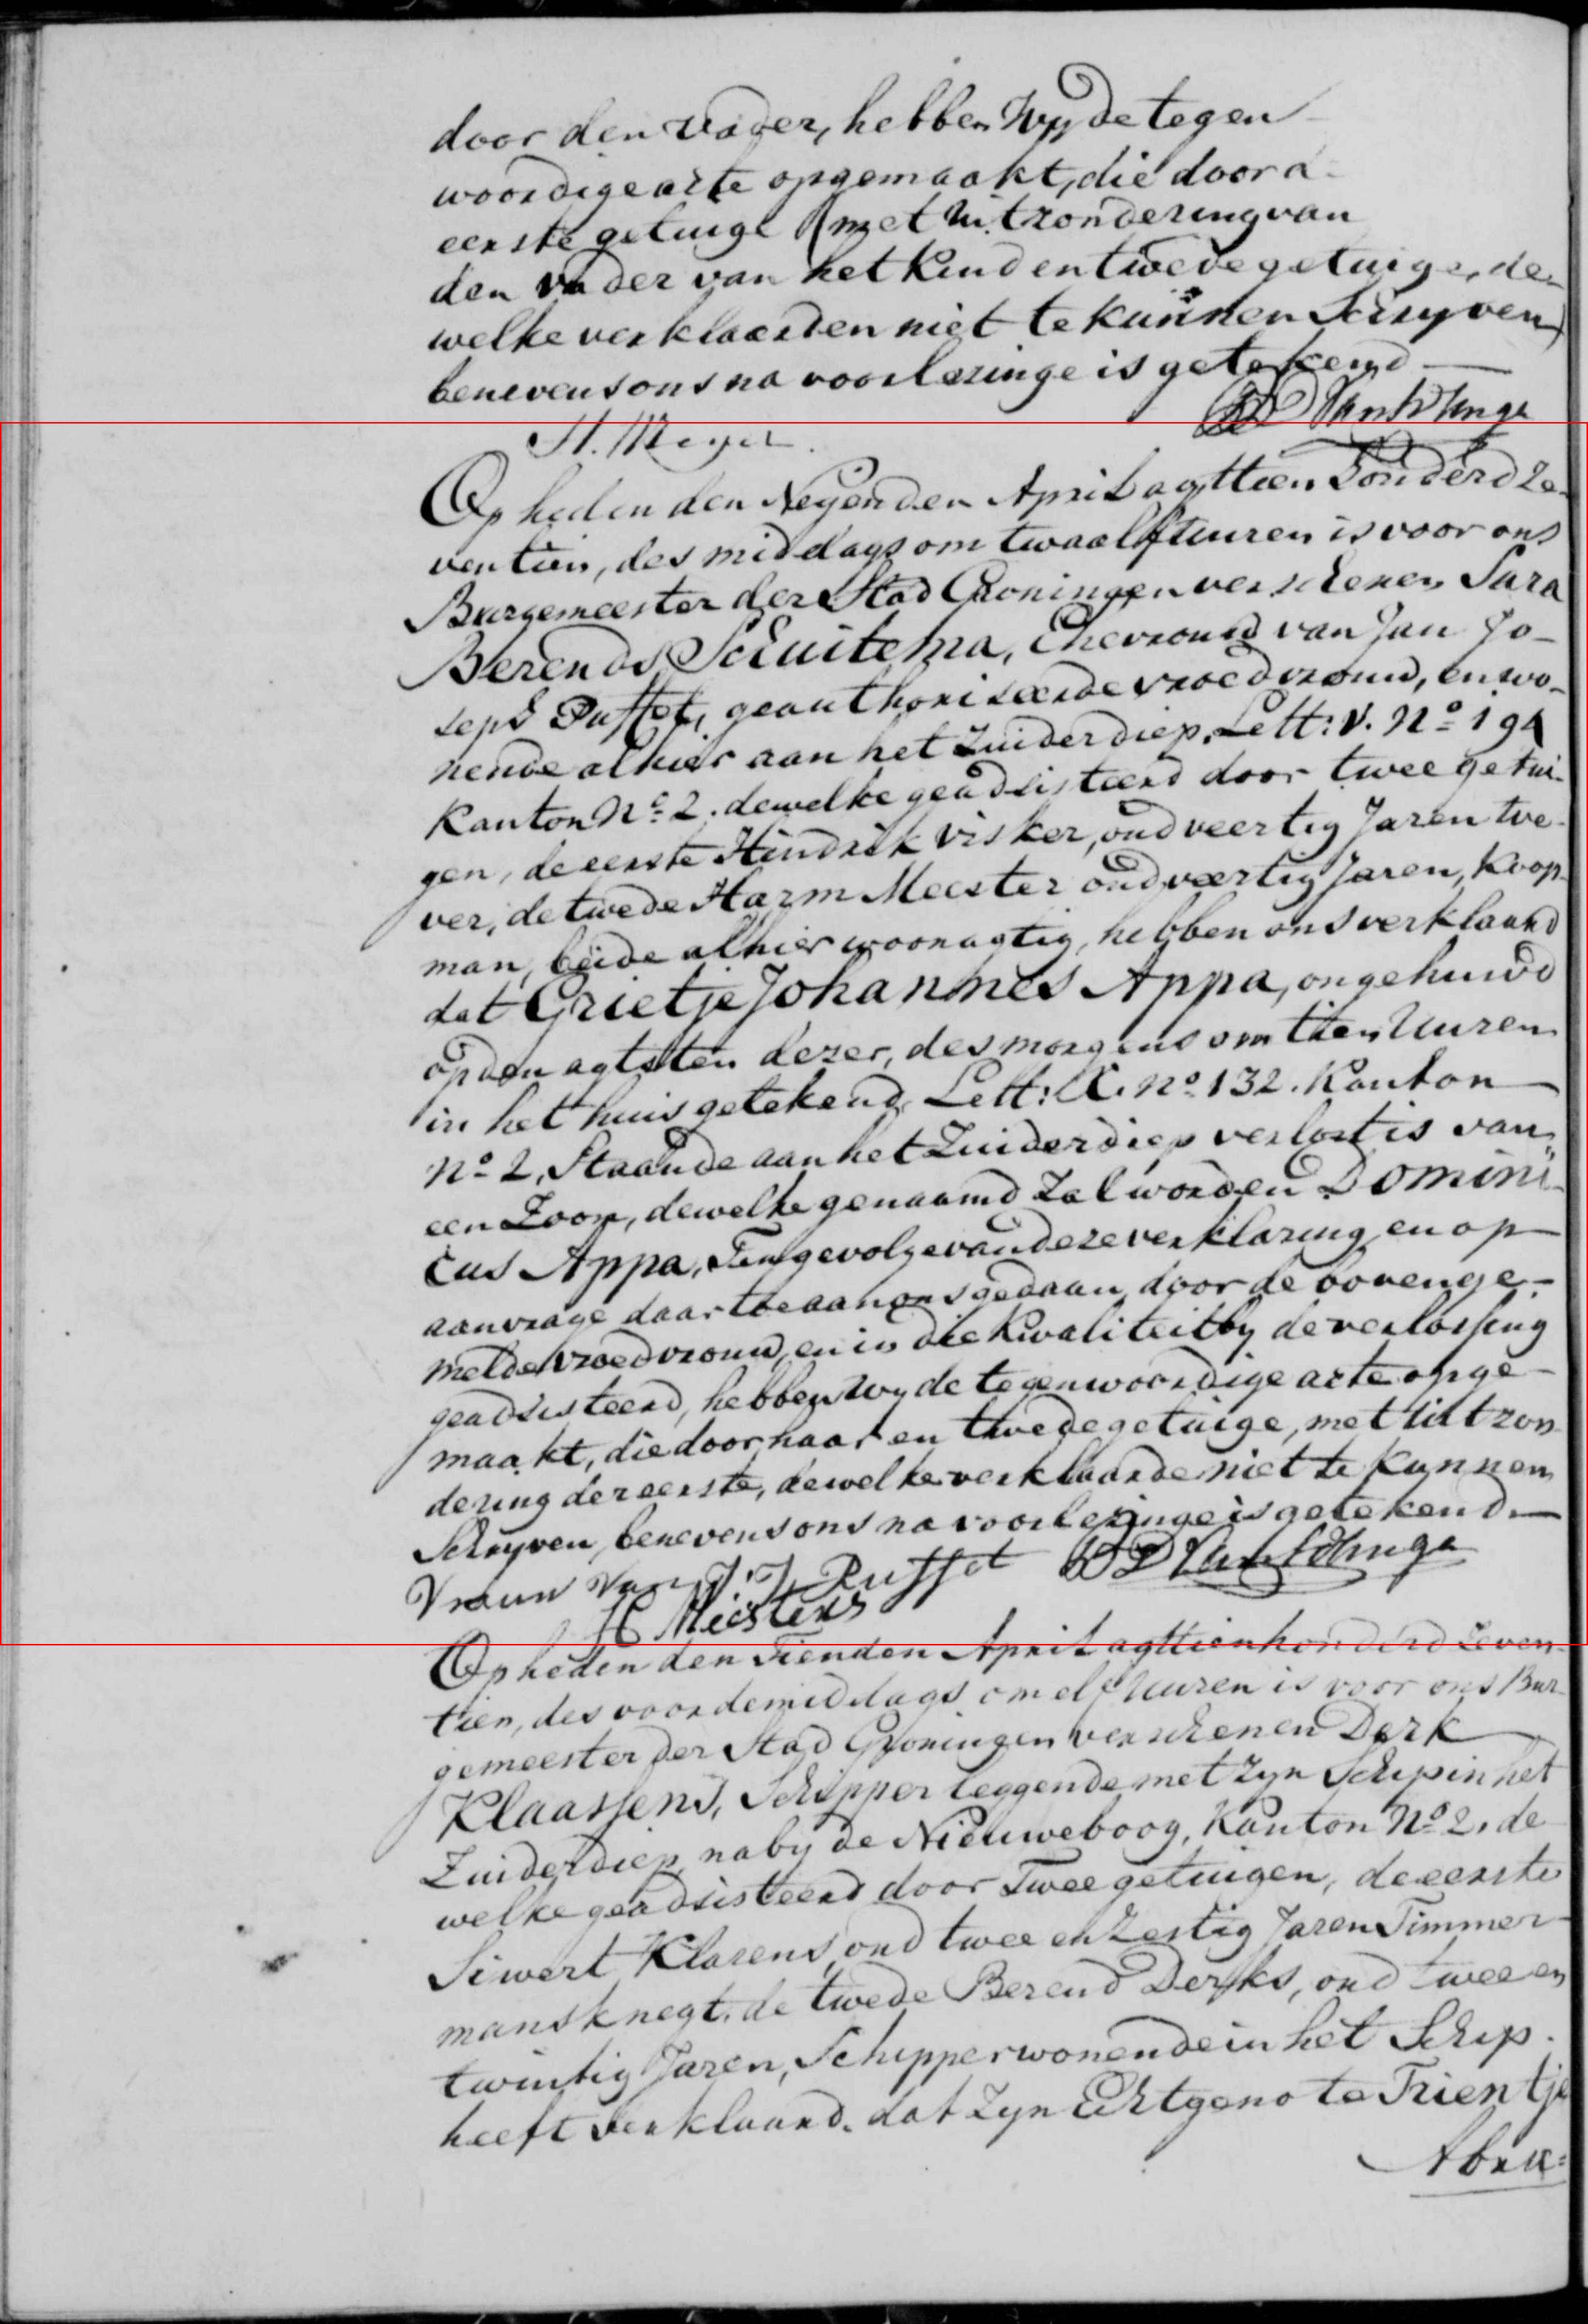 door den vader, hebben Wy de tegen-
woordige acte opgemaakt, die door d-
eerste getuige (met Uitzondering van
den vader van het Kind en twede getuige, de-
welke verklaarden niet te kunnen Schryven)
benevens ons na voorlezinge is getekend —
H. Meyer
Op heden den Negenden April agttien honderd ze-
ventien, des middags om twaalf uuren is voor ons
Burgemeester der Stad Groningen verschenen Sara
Berends Schuitema, Ehevrouw van Jan Jo-
seph Puffet, geauthoriseerde vroedvrouw, en wo-
nende alhier aan het Zuiderdiep. Lett: V. No 194
Kanton No 2. dewelke geadsisteerd door twee getui-
gen, de eerste Hindrik Visker, oud veertig Jaren We-
ver, de twede Harm Meester oud veertig Jaren, Koop-
man, beide alhier woonagtig, hebben ons verklaard
dat Grietje Johannes Appa, ongehuwd
op den agtsten dezer, des morgens om tien Uuren
in het huis getekend, Lett: X. No 132. Kanton
No 2, Staande aan het Zuiderdiep verlost is van
een Zoon, dewelke genaamd Zal worden Domini-
cus Appa, Ten gevolge van deze verklaring en op
aanvrage daar toe aan ons gedaan door de bovenge-
melde vroedvrouw, en in die Kwaliteit by de verlossing
geadsisteerd, hebben Wy de tegenwoordige acte opge-
maakt, die door haar en twede getuige, met Uitzon-
dering der eerste, dewelke verklaarde niet te kunnen
Schryven, benevens ons na voorlezinge is getekend. —
Vrouw Van J. J. Puffet
H Meesters
Op heden den Tienden April agttien honderd Zeven-
tien, des voordemiddags om elf Uuren is voor ons Bur-
gemeester der Stad Groningen verschenen Derk
Klaassens, Schipper leggende met Zyn Schip in het
Zuiderdiep naby de Nieuweboog, Kanton No 2, de
welke geadsisteerd door Twee getuigen, de eerste
Siwert Klasens, oud twee en Zestig Jaren Timmer-
mansknegt, de twede Berend Derks, oud twee en
twintig Jaren, Schipper wonende in het Schip.
heeft verklaard, dat Zyn Echtgenote Trientje
Abra=